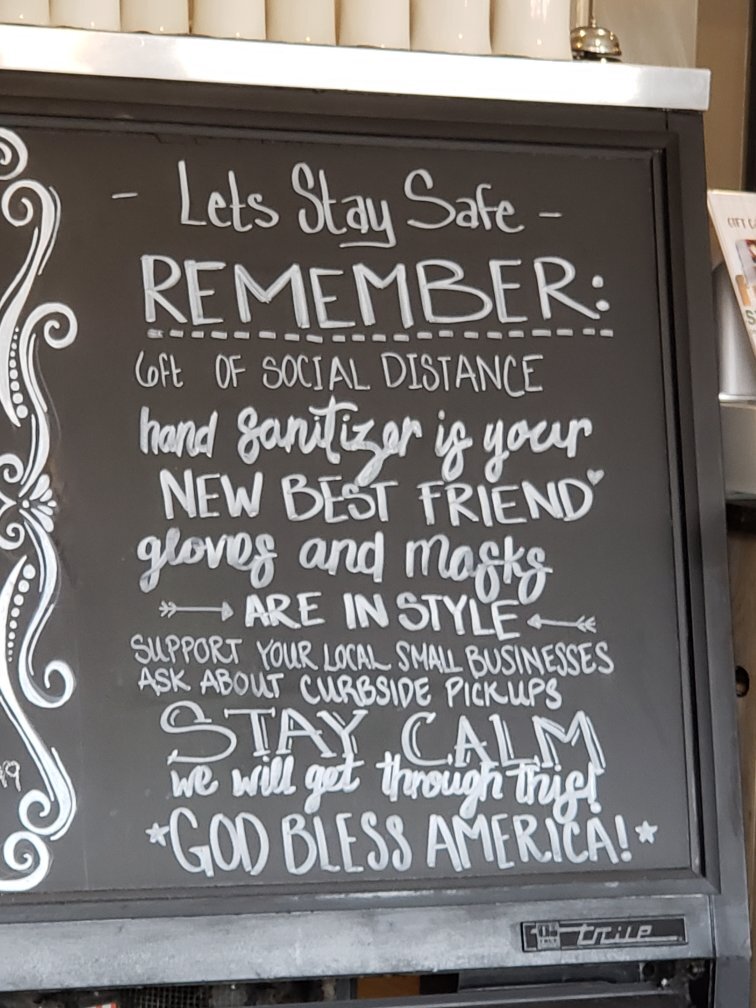 - Lets Stay Safe -
REMEMBER:
6ft OF SOCIAL DISTANCE
hand sanitizer is your
NEW BEST FRIEND
gloves and masks
ARE IN STYLE
SUPPORT YOUR LOCAL SMALL BUSINESSES
ASK ABOUT CURBSIDE PICKUPS
STAY CALM
we will get through this!
*GOD BLESS AMERICA!*
true